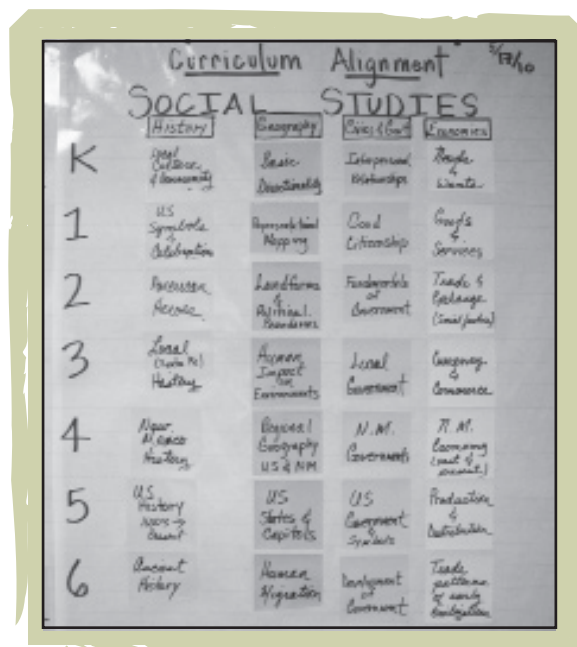 Curriculum Alignment
5/17/10
SOCIAL STUDIES
History Geography Civics & Govt Economics
K
Local
Culture
& Community
Basic
Directionality
Interpersonal
Relationships
People
&
Wants
1
US
Symbols
&
Celebration
Representational
Mapping
Good
Citizenship
Goods
&
Services
2
Landforms
&
Political
Boundaries
Fundamentals
of
Government
Trade &
Exchange
3
Local
History
Human
Impact
on
Environments
Local
Government
Currency
&
Commerce
4
New
Mexico
History
Regional
Geography
US & NM
N.M.
Government
N.M.
Economy
(past &
present)
5
U.S.
History
Present
US
States &
Capitols
US
Government
Symbols
Production
&
Distribution
6
Ancient
History
Human
Migration
Development
of
Government
Trade
patterns
of early